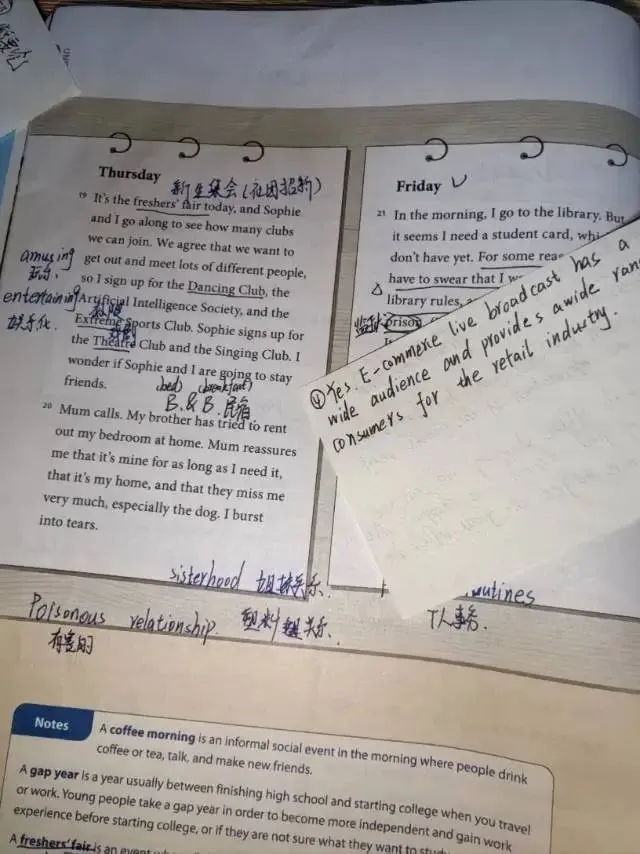 Thursday
新生集会(社团招新)
19 It's the freshers' fair today, and Sophie
and I go along to see how many clubs
we can join. We agree that we want to
get out and meet lots of different people,
so I sign up for the Dancing Club, the
Artificial Intelligence Society, and the
Extreme Sports Club. Sophie signs up for
the Theatre Club and the Singing Club. I
wonder if Sophie and I are going to stay
friends.
amusing
entertaining
娱乐化.
极限
(bed) (breakfast)
B.&B. 民宿
20 Mum calls. My brother has tried to rent
out my bedroom at home. Mum reassures
me that it's mine for as long as I need it,
that it's my home, and that they miss me
very much, especially the dog. I burst
into tears.
Friday
21 In the morning, I go to the library. But
it seems I need a student card,
don't have yet. For some
have to swear that I
library rules,
监狱 prison
④ Yes. E-commerce live broadcast has a
wide audience and provides a wide
consumers for the retail industry.
sisterhood 姐妹关系.
Poisonous relationship. 塑料 关系.
有害的
Notes
A coffee morning is an informal social event in the morning where people drink
coffee or tea, talk, and make new friends.
A gap year is a year usually between finishing high school and starting college when you travel
or work. Young people take a gap year in order to become more independent and gain work
experience before starting college, or if they are not sure what they want to
A freshers' fair is an